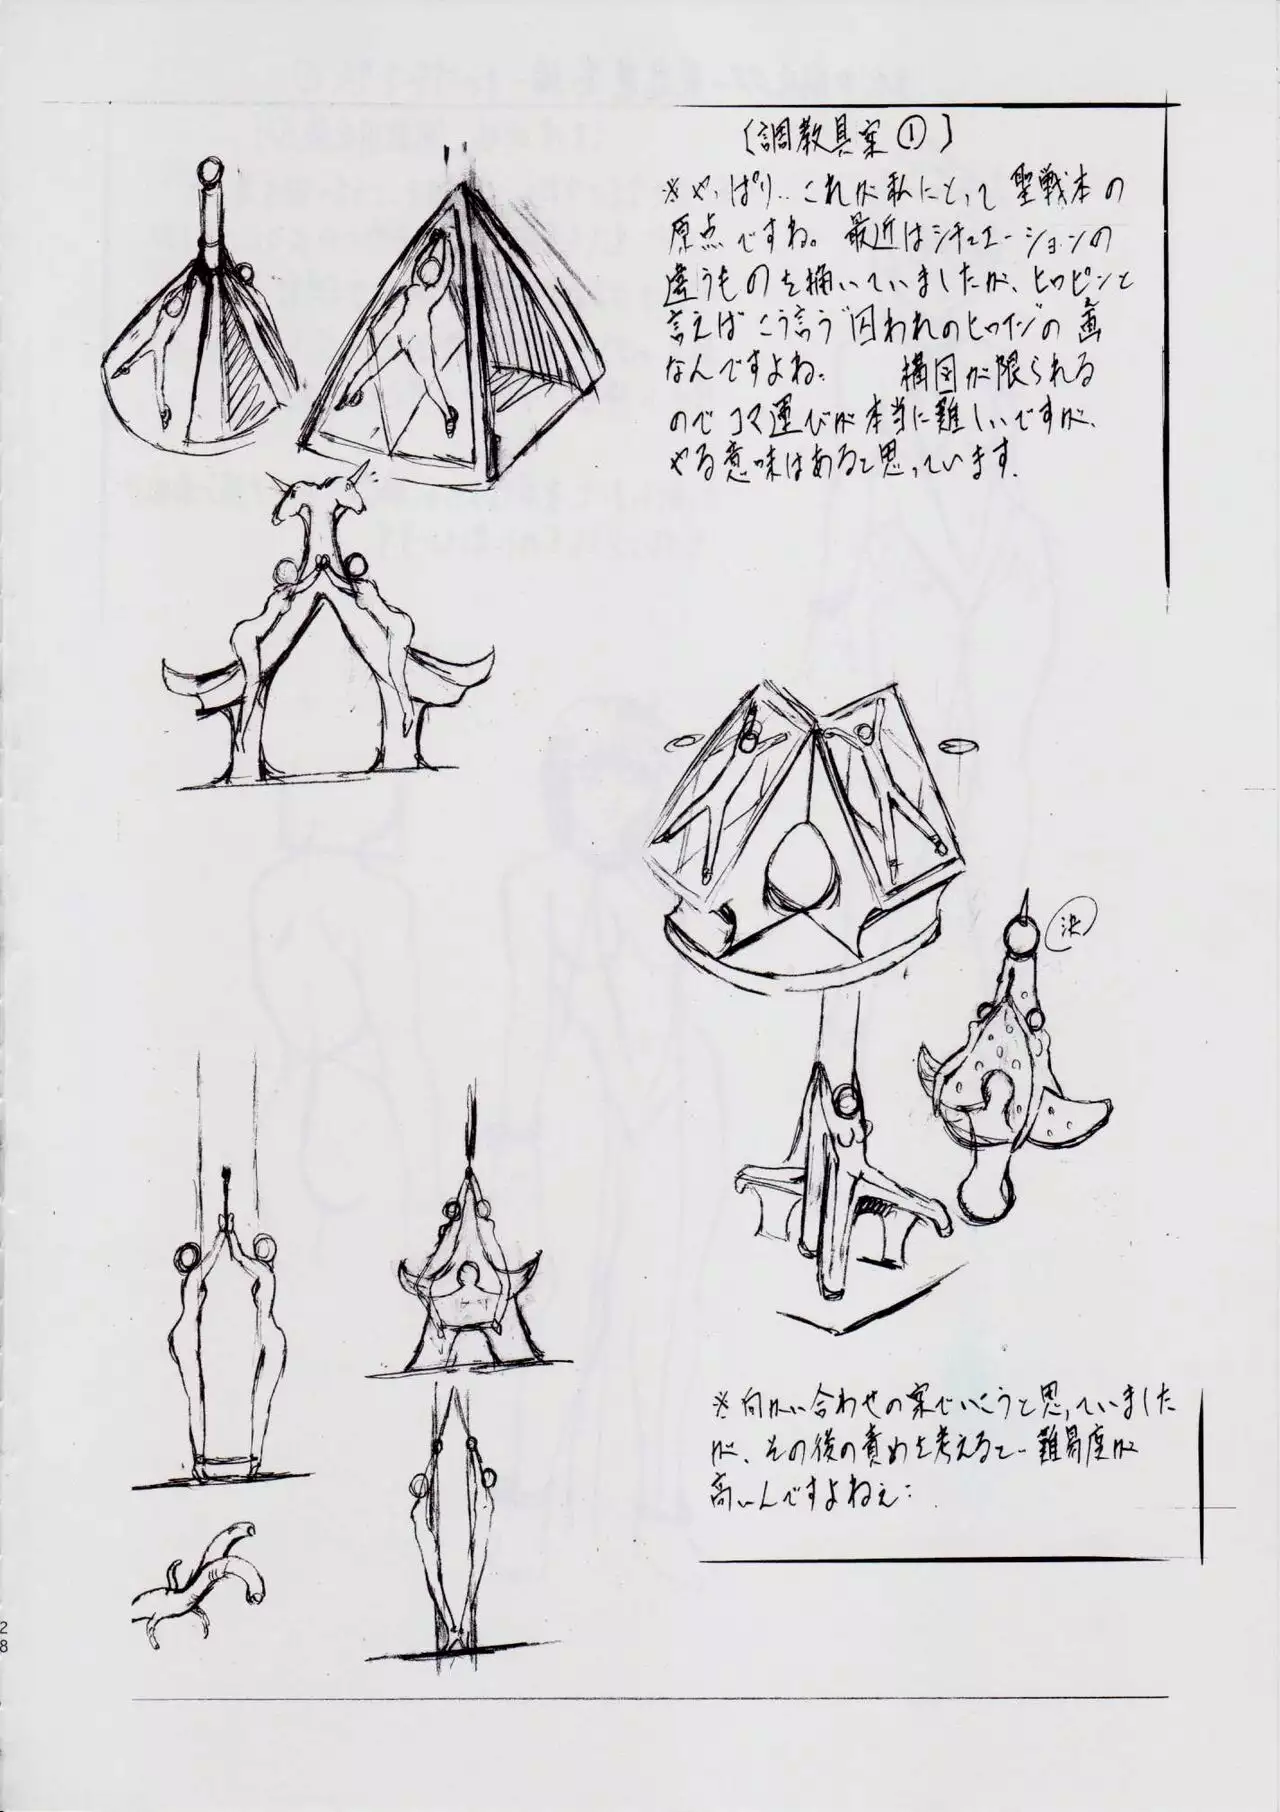 〔調教具案①〕
※やっぱり‥これが私にとって聖戦本の
原点ですね。最近はシチュエーションの
違うものを描いていましたが、ヒロピンと
言えばこう言う“囚われのヒロイン”の画
なんですよね。 構図が限られる
のでコマ運びが本当に難しいですが、
やる意味はあると思っています.
決
※向かい合わせの案でいこうと思っていました
が、その後の責めを考えると‥難易度が
高いんですよねぇ‥
28